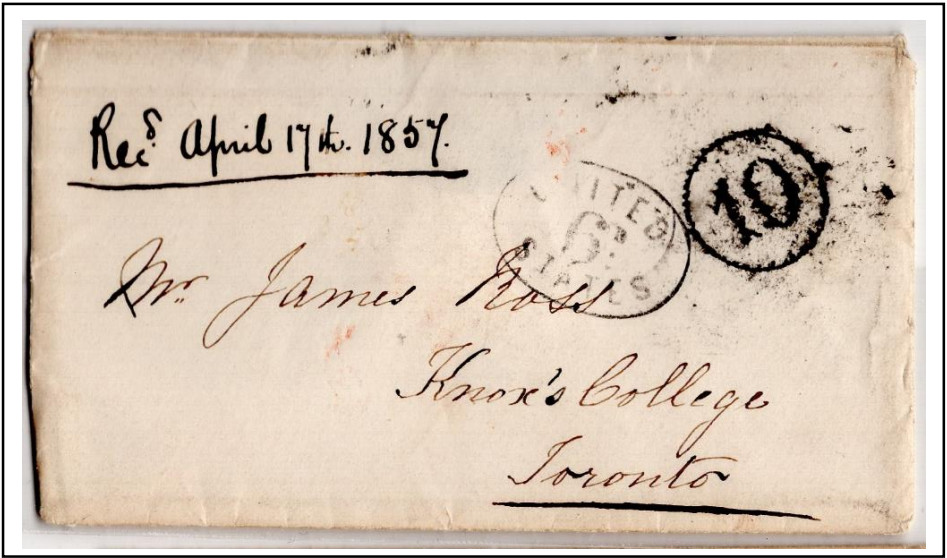 Rec.d April 17th. 1857.
10
UNITED
6d.
STATES
Mr. James Ross
Knox's College
Toronto